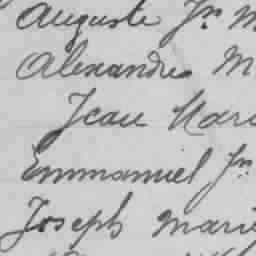 Auguste Jn M
Alexandre M
Jean Mari
Emmanuel Jn
Joseph Marie